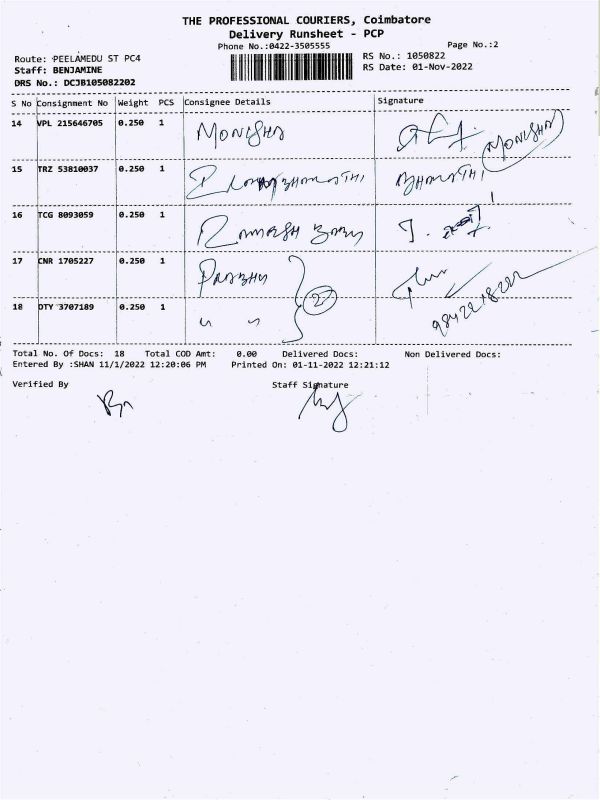 THE PROFESSIONAL COURIERS, Coimbatore
Delivery Runsheet - PCP
Phone No.:0422-3505555 Page No.:2
Route: PEELAMEDU ST PC4 RS No.: 1050822
Staff: BENJAMINE RS Date: 01-Nov-2022
DRS No.: DCJB105082202
S No Consignment No Weight PCS Consignee Details Signature
14 VPL 215646705 0.250 1 MONISHA MONISHA
15 TRZ 53810037 0.250 1 BHARATHI
16 TCG 8093059 0.250 1 RAMESH BABU J.
17 CNR 1705227 0.250 1 PRABHU
2
18 DTY 3707189 0.250 1 " "
Total No. Of Docs: 18 Total COD Amt: 0.00 Delivered Docs: Non Delivered Docs:
Entered By :SHAN 11/1/2022 12:20:06 PM Printed On: 01-11-2022 12:21:12
Verified By Staff Signature